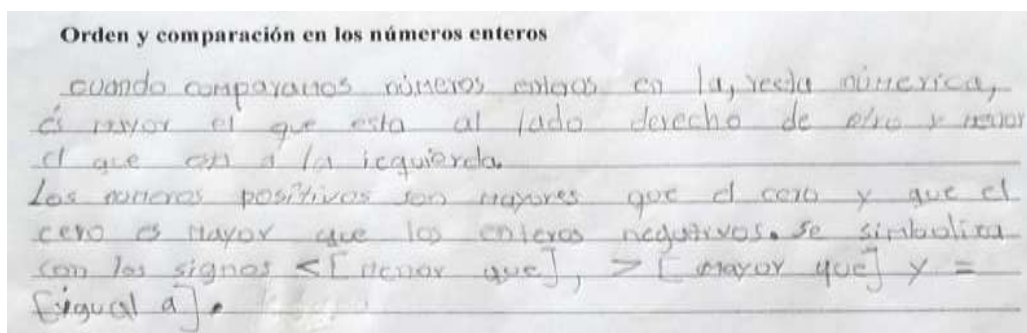 Orden y comparación en los números enteros
cuando comparamos números enteros en la, recta númerica,
és mayor el que esta al lado derecho de otro y menor
el que está a la icquierda.
Los números posítivos son mayores que el cero y que el
cero es mayor que los enteros negativos. se simboliza
con los signos < [menor que], > [mayor que] y =
[igual a].